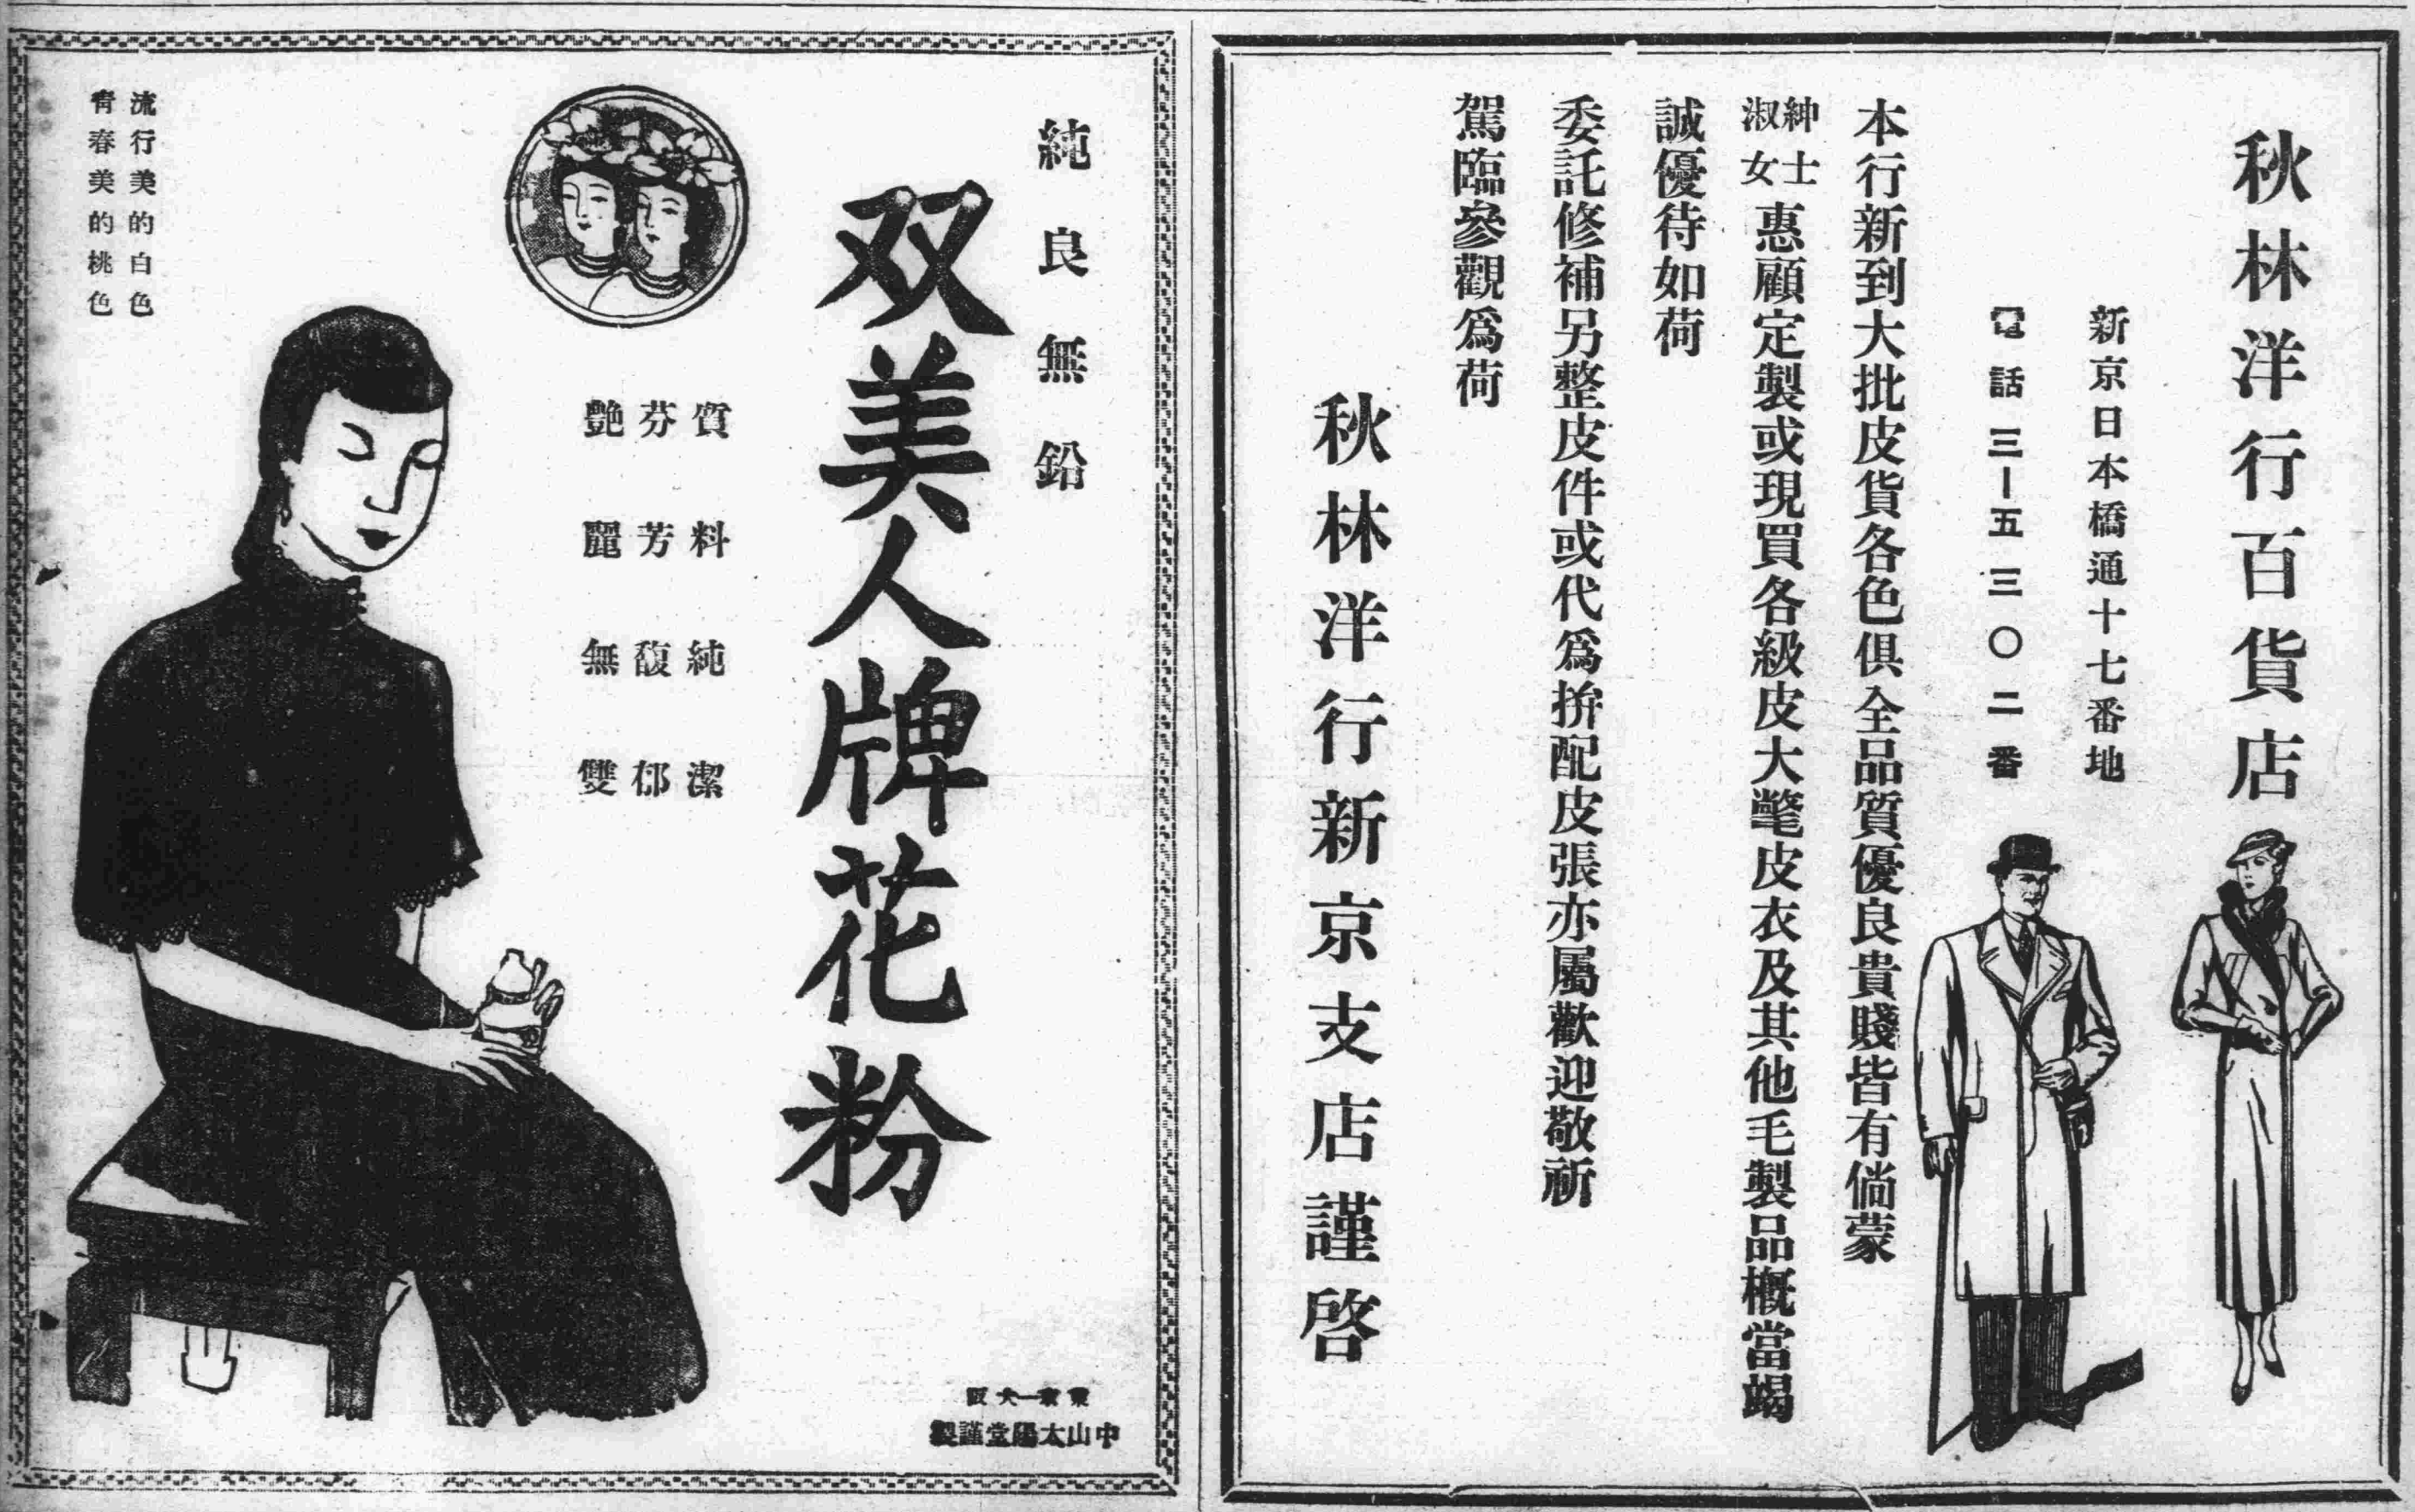 秋林洋行百貨店
新京日本橋通十七番地
電話三-五三〇二番
本行新到大批皮貨各色俱全品質優良貴賤皆有倘蒙
紳士
淑女
惠顧定製或現買各級皮大氅皮衣及其他毛製品概當竭
誠優待如荷
委託修補另整皮件或代爲拚配皮張亦屬歡迎敬祈
駕臨參觀爲荷
秋林洋行新京支店謹啓
純良無鉛
双美人牌花粉
質料純潔
芬芳馥郁
艷麗無雙
流行美的白色
青春美的桃色
東京—大阪
中山太陽堂謹製